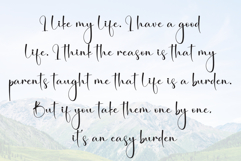 I like my life. I have a good
life. I think the reason is that my
parents taught me that life is a burden.
But if you take them one by one,
it's an easy burden